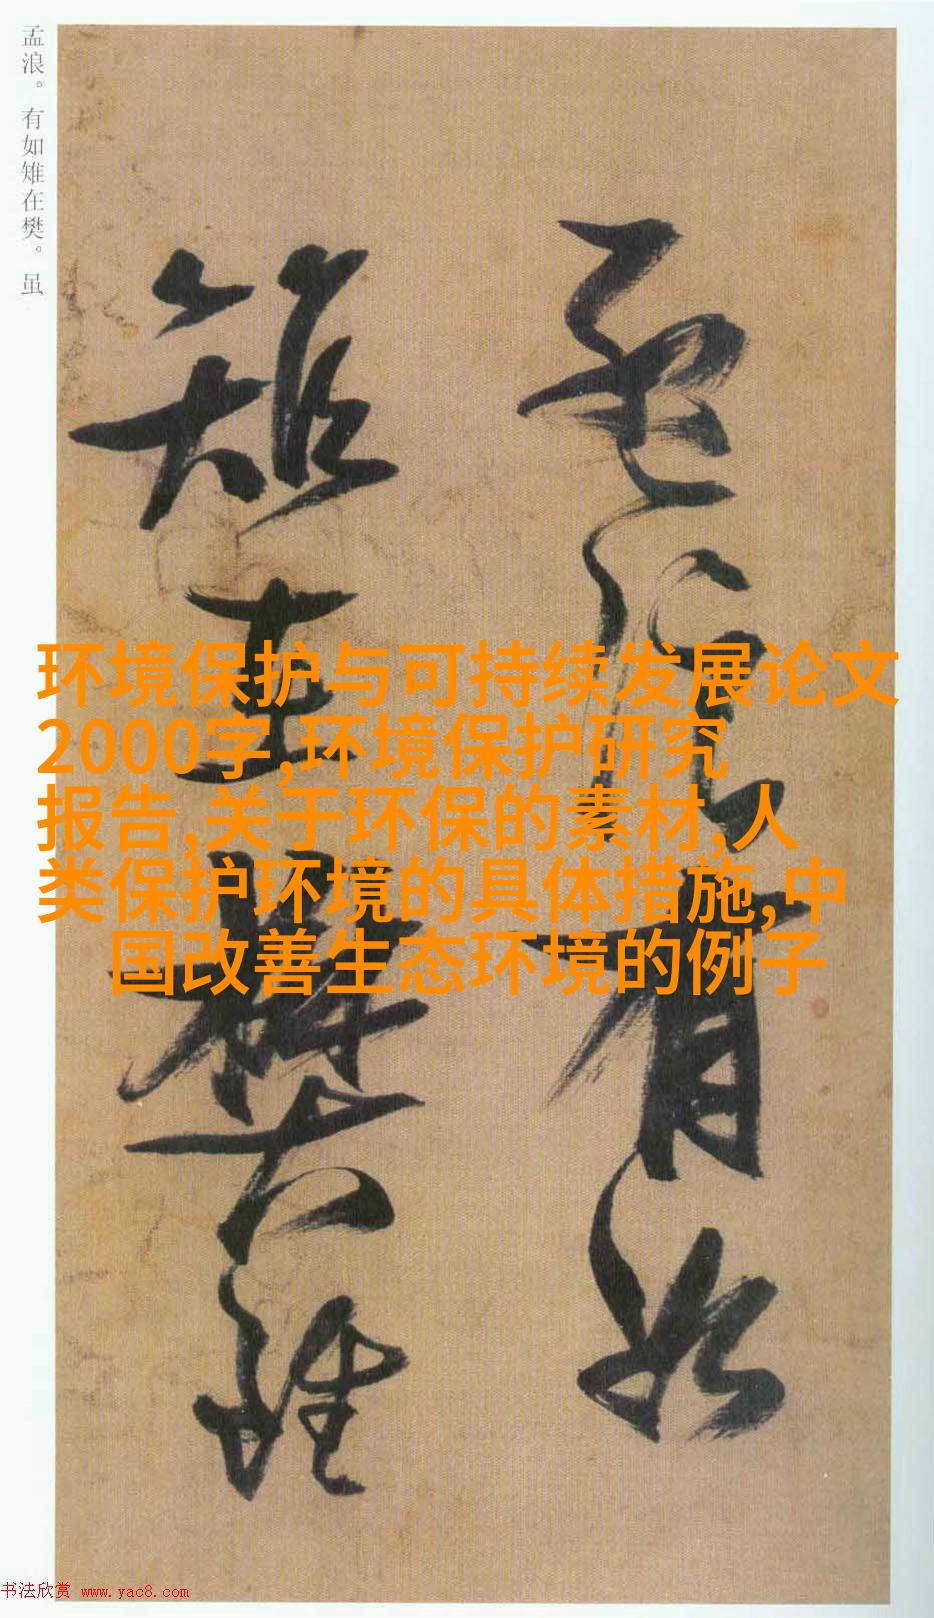 孟浪。有如雉在樊。虽
孟浪有如
雉在樊虽
环境保护与可持续发展论文
2000字,环境保护研究
报告,关于环保的素材,人
类保护环境的具体措施,中
国改善生态环境的例子
书法欣赏 www.yac8.com